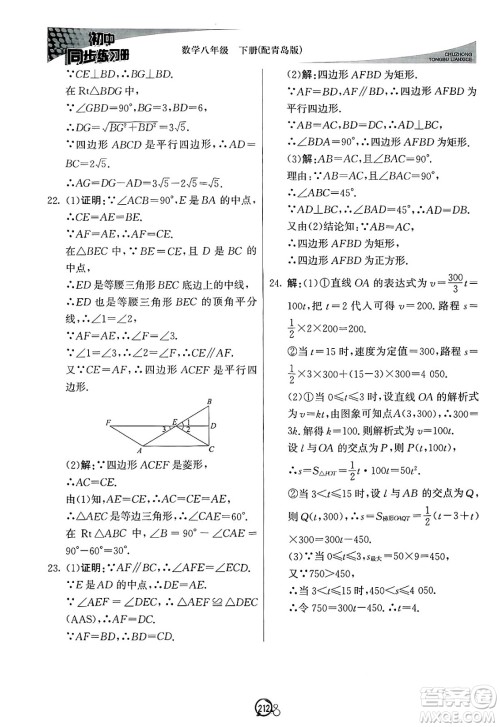 初中
同步练习册
数学八年级 下册(配青岛版)
CHUZHONG
TONGBU LIANXICE
∵CE⊥BD,∴CE⊥AF.
在 Rt△BDG 中,
∵∠GBD=90°,BG=BD=√5,
∴DG=√BG²+BD²=3√5.
∵四边形 ABCD 是平行四边形,
∴AD=BC=2√5.
∴AG=DG-AD=√5.
22. (1)证明:∵∠ACB=90°,E 是 BA 的中点,
∴CE=AE=BE.
∵AF=AE,∴AF=CE.
在△BEC 中,∵BE=CE 且 D 是 BC 的中点,
∴ED 是等腰三角形 BEC 的中线,
∴ED 是等腰三角形 BEC 的顶角平分线,
∴∠1=∠2.
∵AF=AE,∴∠F=∠3.
∵∠1=∠3,∴∠2=∠F.
∴CE∥AF.
又∵CE=AF,∴四边形 ACEF 是平行四边形.
B
F
3
E
1
2
D
A
C
(2)解:∵四边形 ACEF 是菱形,
∴AC=CE.
由(1)知,AE=CE,∴AC=CE=AE,
∴△AEC 是等边三角形,
∴∠CAE=60°,∴∠B=90°-∠CAE=90°-60°=30°.
23. (1)证明:∵AF∥BC,∴∠AFE=∠DCE.
∵E 是 AD 的中点,∴AE=DE.
∵∠AEF=∠DEC,∴△AEF≌△DEC
(AAS),∴AF=DC.
∵AF=BD,∴BD=CD.
(2)解:四边形 AFBD 为矩形.
∵AF=BD,AF∥BD,
∴四边形 AFBD 为平行四边形.
∵AB=AC,BD=DC,∴AD⊥BC,
∴∠BDA=90°,∴四边形 AFBD 为矩形.
(3)解:AB=AC,且∠BAC=90°.
理由:∵AB=AC,∠BAC=90°,
∴∠ABC=45°.
∵AD⊥BC,∴∠BAD=45°,∴AD=BD.
又由(2)结论知:
四边形 AFBD 为矩形,
∴四边形 AFBD 为正方形.
24. 解:(1)①直线 OA 的表达式为 v=300/3 t=
100t,把 t=2 代入可得 v=200. 路程 s=
1/2×2×200=200.
②当 t=15 时,速度为定值=300,路程 s=
1/2×3×300+(15-3)×300=4 050.
(2)①当 0≤t≤3 时,设直线 OA 的解析式
为 v=kt,由图象可知点 A(3,300),∴300=
3k. 解得 k=100,则解析式为 v=100t.
设 l 与 OA 的交点为 P,则 P(t,100t),
∴s=S△POT=1/2·t·100t=50t².
②当 3<t≤15 时,设 l 与 AB 的交点为 Q,
则 Q(t,300),∴s=S梯形OAQT=1/2(t-3+t)
×300=300t-450.
(3)∵当 0≤t≤3 时,s最大=50×9=450.
∵750>450,
∴当 3<t≤15 时,450<s≤4 050.
则令 750=300t-450,解得 t=4.
212